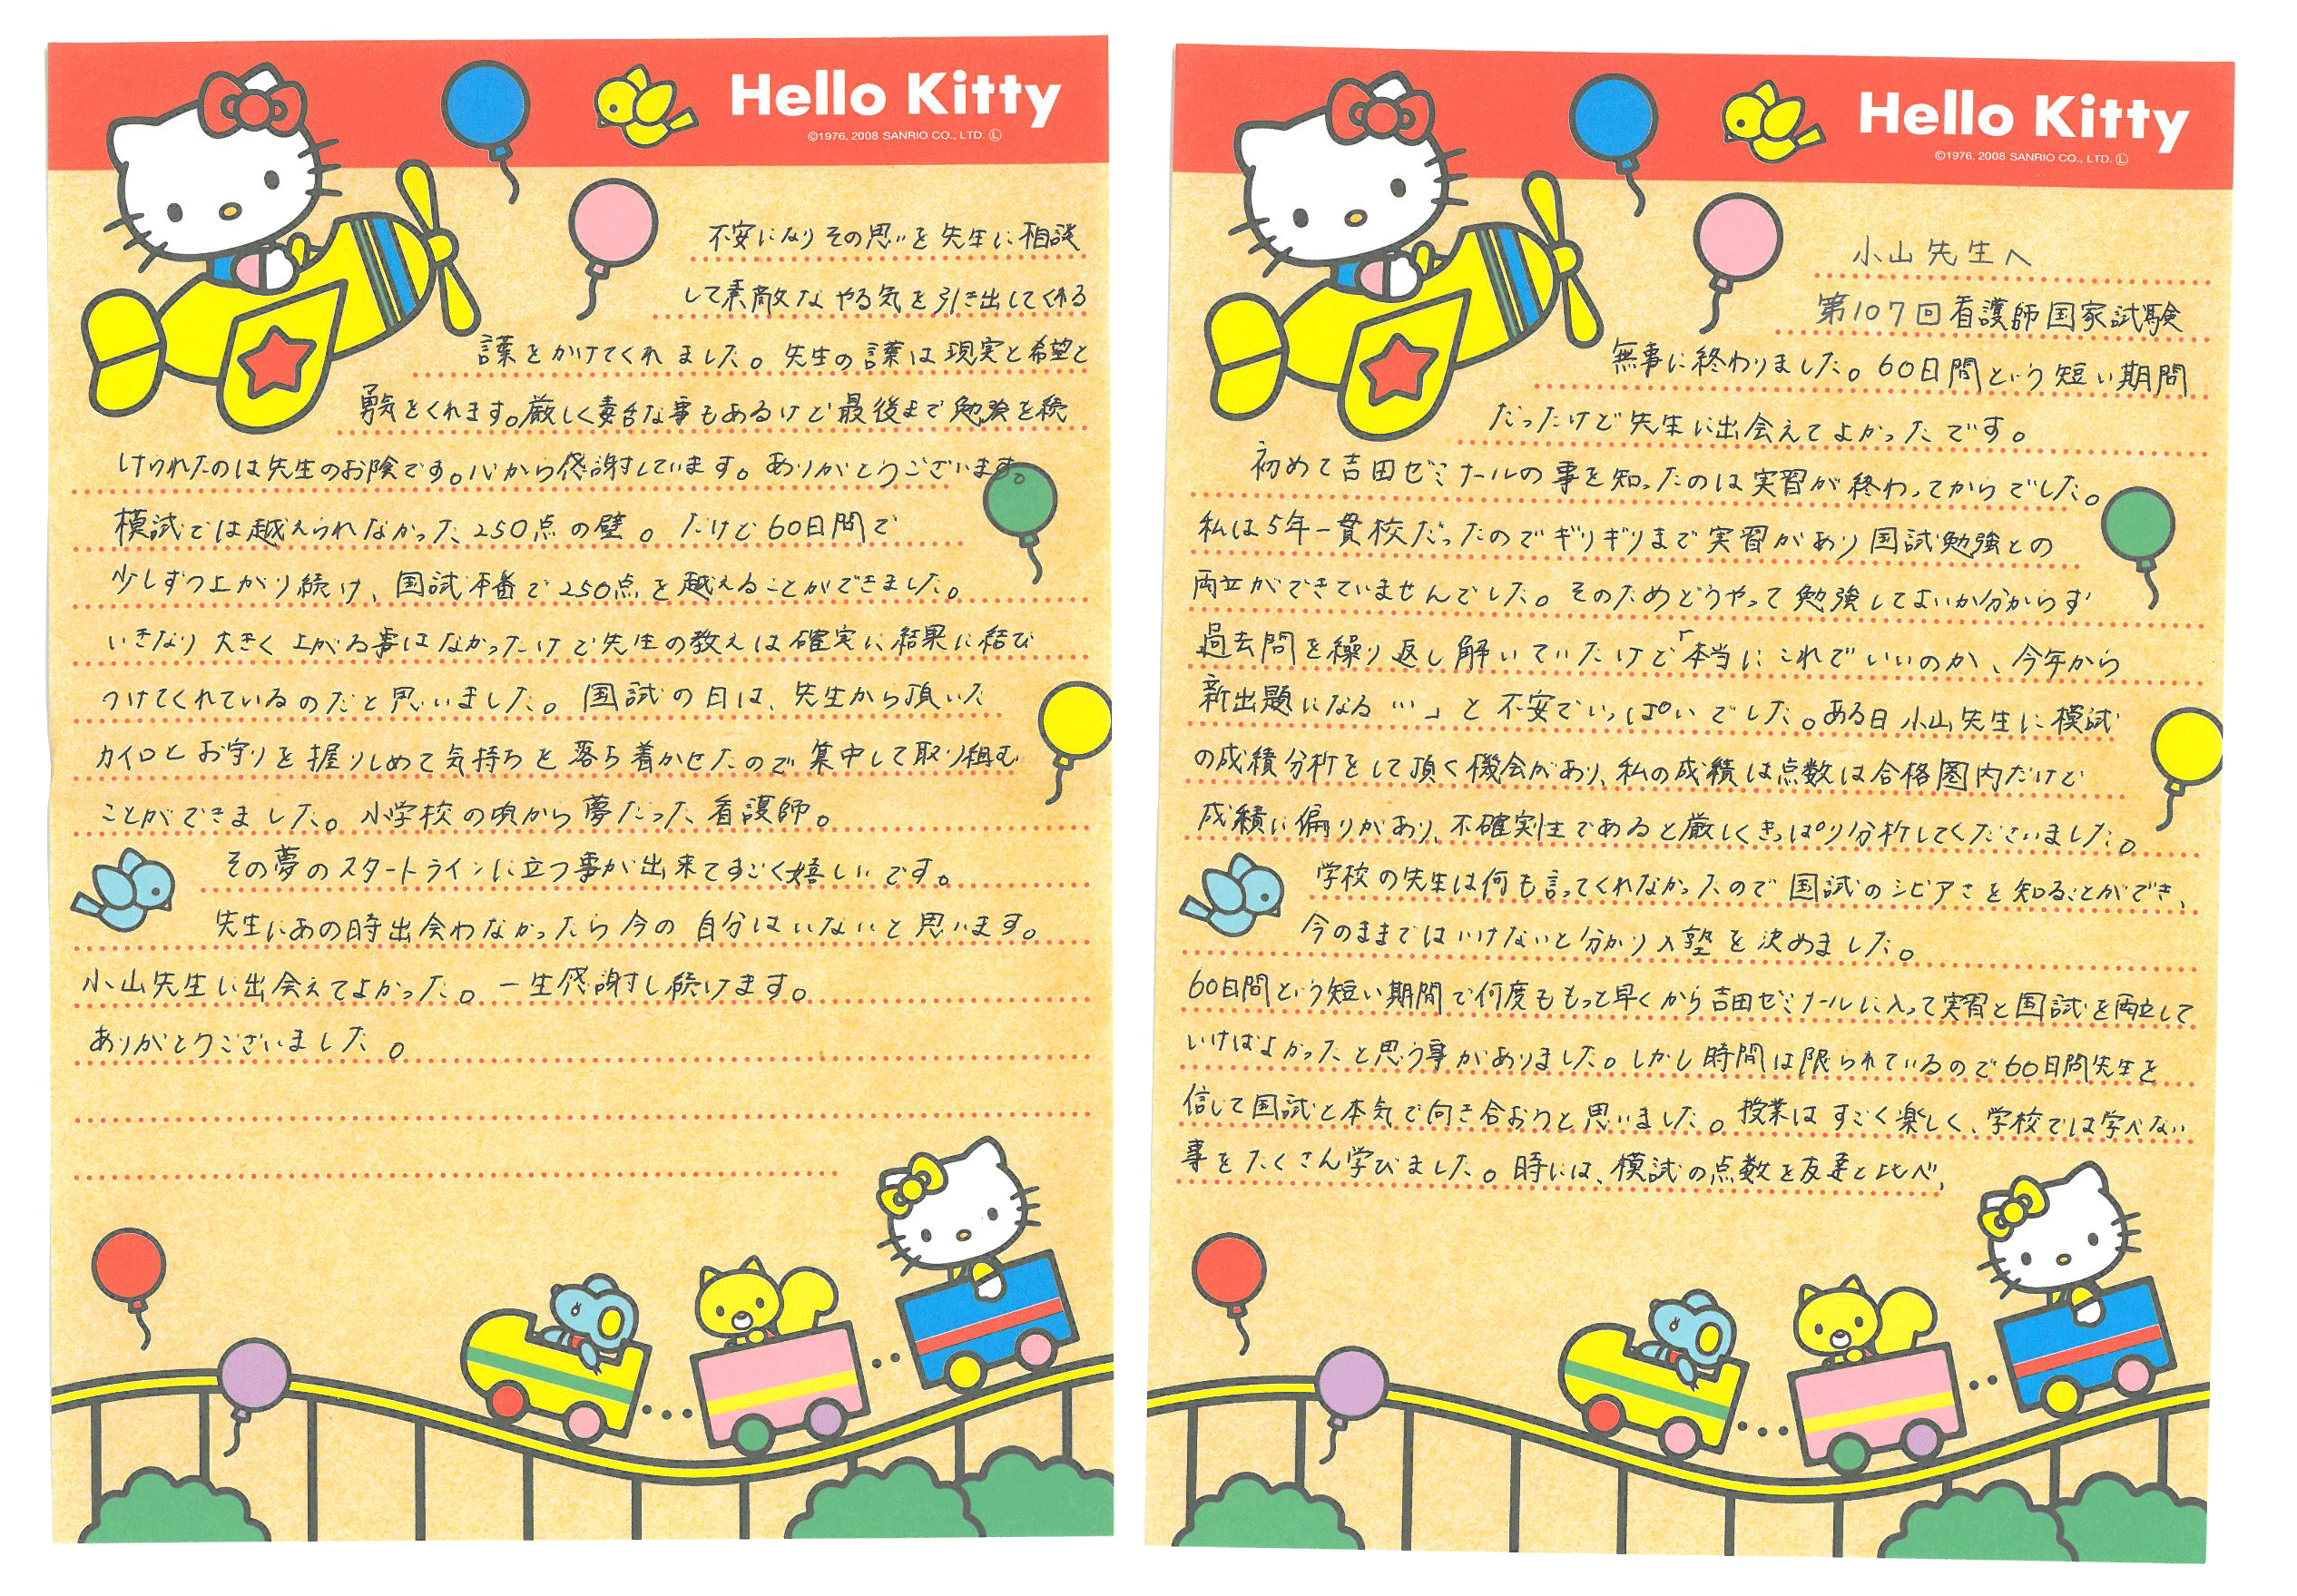 Hello Kitty
©1976, 2008 SANRIO CO., LTD. Ⓛ
小山先生へ
第107回看護師国家試験
無事に終わりました。60日間という短い期間
だったけど先生に出会えてよかったです。
初めて吉田ゼミナールの事を知ったのは実習が終わってからでした。
私は5年一貫校だったのでギリギリまで実習があり国試勉強との
両立ができていませんでした。そのためどうやって勉強してよいか分からず
過去問を繰り返し解いていたけど「本当にこれでいいのか、今年から
新出題になる…」と不安でいっぱいでした。ある日小山先生に模試
の成績分析をして頂く機会があり、私の成績は点数は合格圏内だけど
成績に偏りがあり、不確実性であると厳しくきっぱり分析してくださいました。
学校の先生は何も言ってくれなかったので国試のシビアさを知ることができ、
今のままではいけないと分かり入塾を決めました。
60日間という短い期間で何度ももっと早くから吉田ゼミナールに入って実習と国試を両立して
いけばよかったと思う事がありました。しかし時間は限られているので60日間先生を
信じて国試と本気で向き合おうと思いました。授業はすごく楽しく、学校では学べない
事をたくさん学びました。時には、模試の点数を友達と比べ、
Hello Kitty
©1976, 2008 SANRIO CO., LTD. Ⓛ
不安になりその思いを先生に相談
して素敵なやる気を引き出してくれる
言葉をかけてくれました。先生の言葉は現実と希望と
勇気をくれます。厳しく毒舌な事もあるけど最後まで勉強を続
けられたのは先生のお陰です。心から感謝しています。ありがとうございます。
模試では越えられなかった250点の壁。だけど60日間で
少しずつ上がり続け、国試本番で250点を越えることができました。
いきなり大きく上がる事はなかったけど先生の教えは確実に結果に結び
つけてくれているのだと思いました。国試の日は、先生から頂いた
カイロとお守りを握りしめて気持ちを落ち着かせたので集中して取り組む
ことができました。小学校の頃から夢だった看護師。
その夢のスタートラインに立つ事が出来てすごく嬉しいです。
先生にあの時出会わなかったら今の自分はいないと思います。
小山先生に出会えてよかった。一生感謝し続けます。
ありがとうございました。